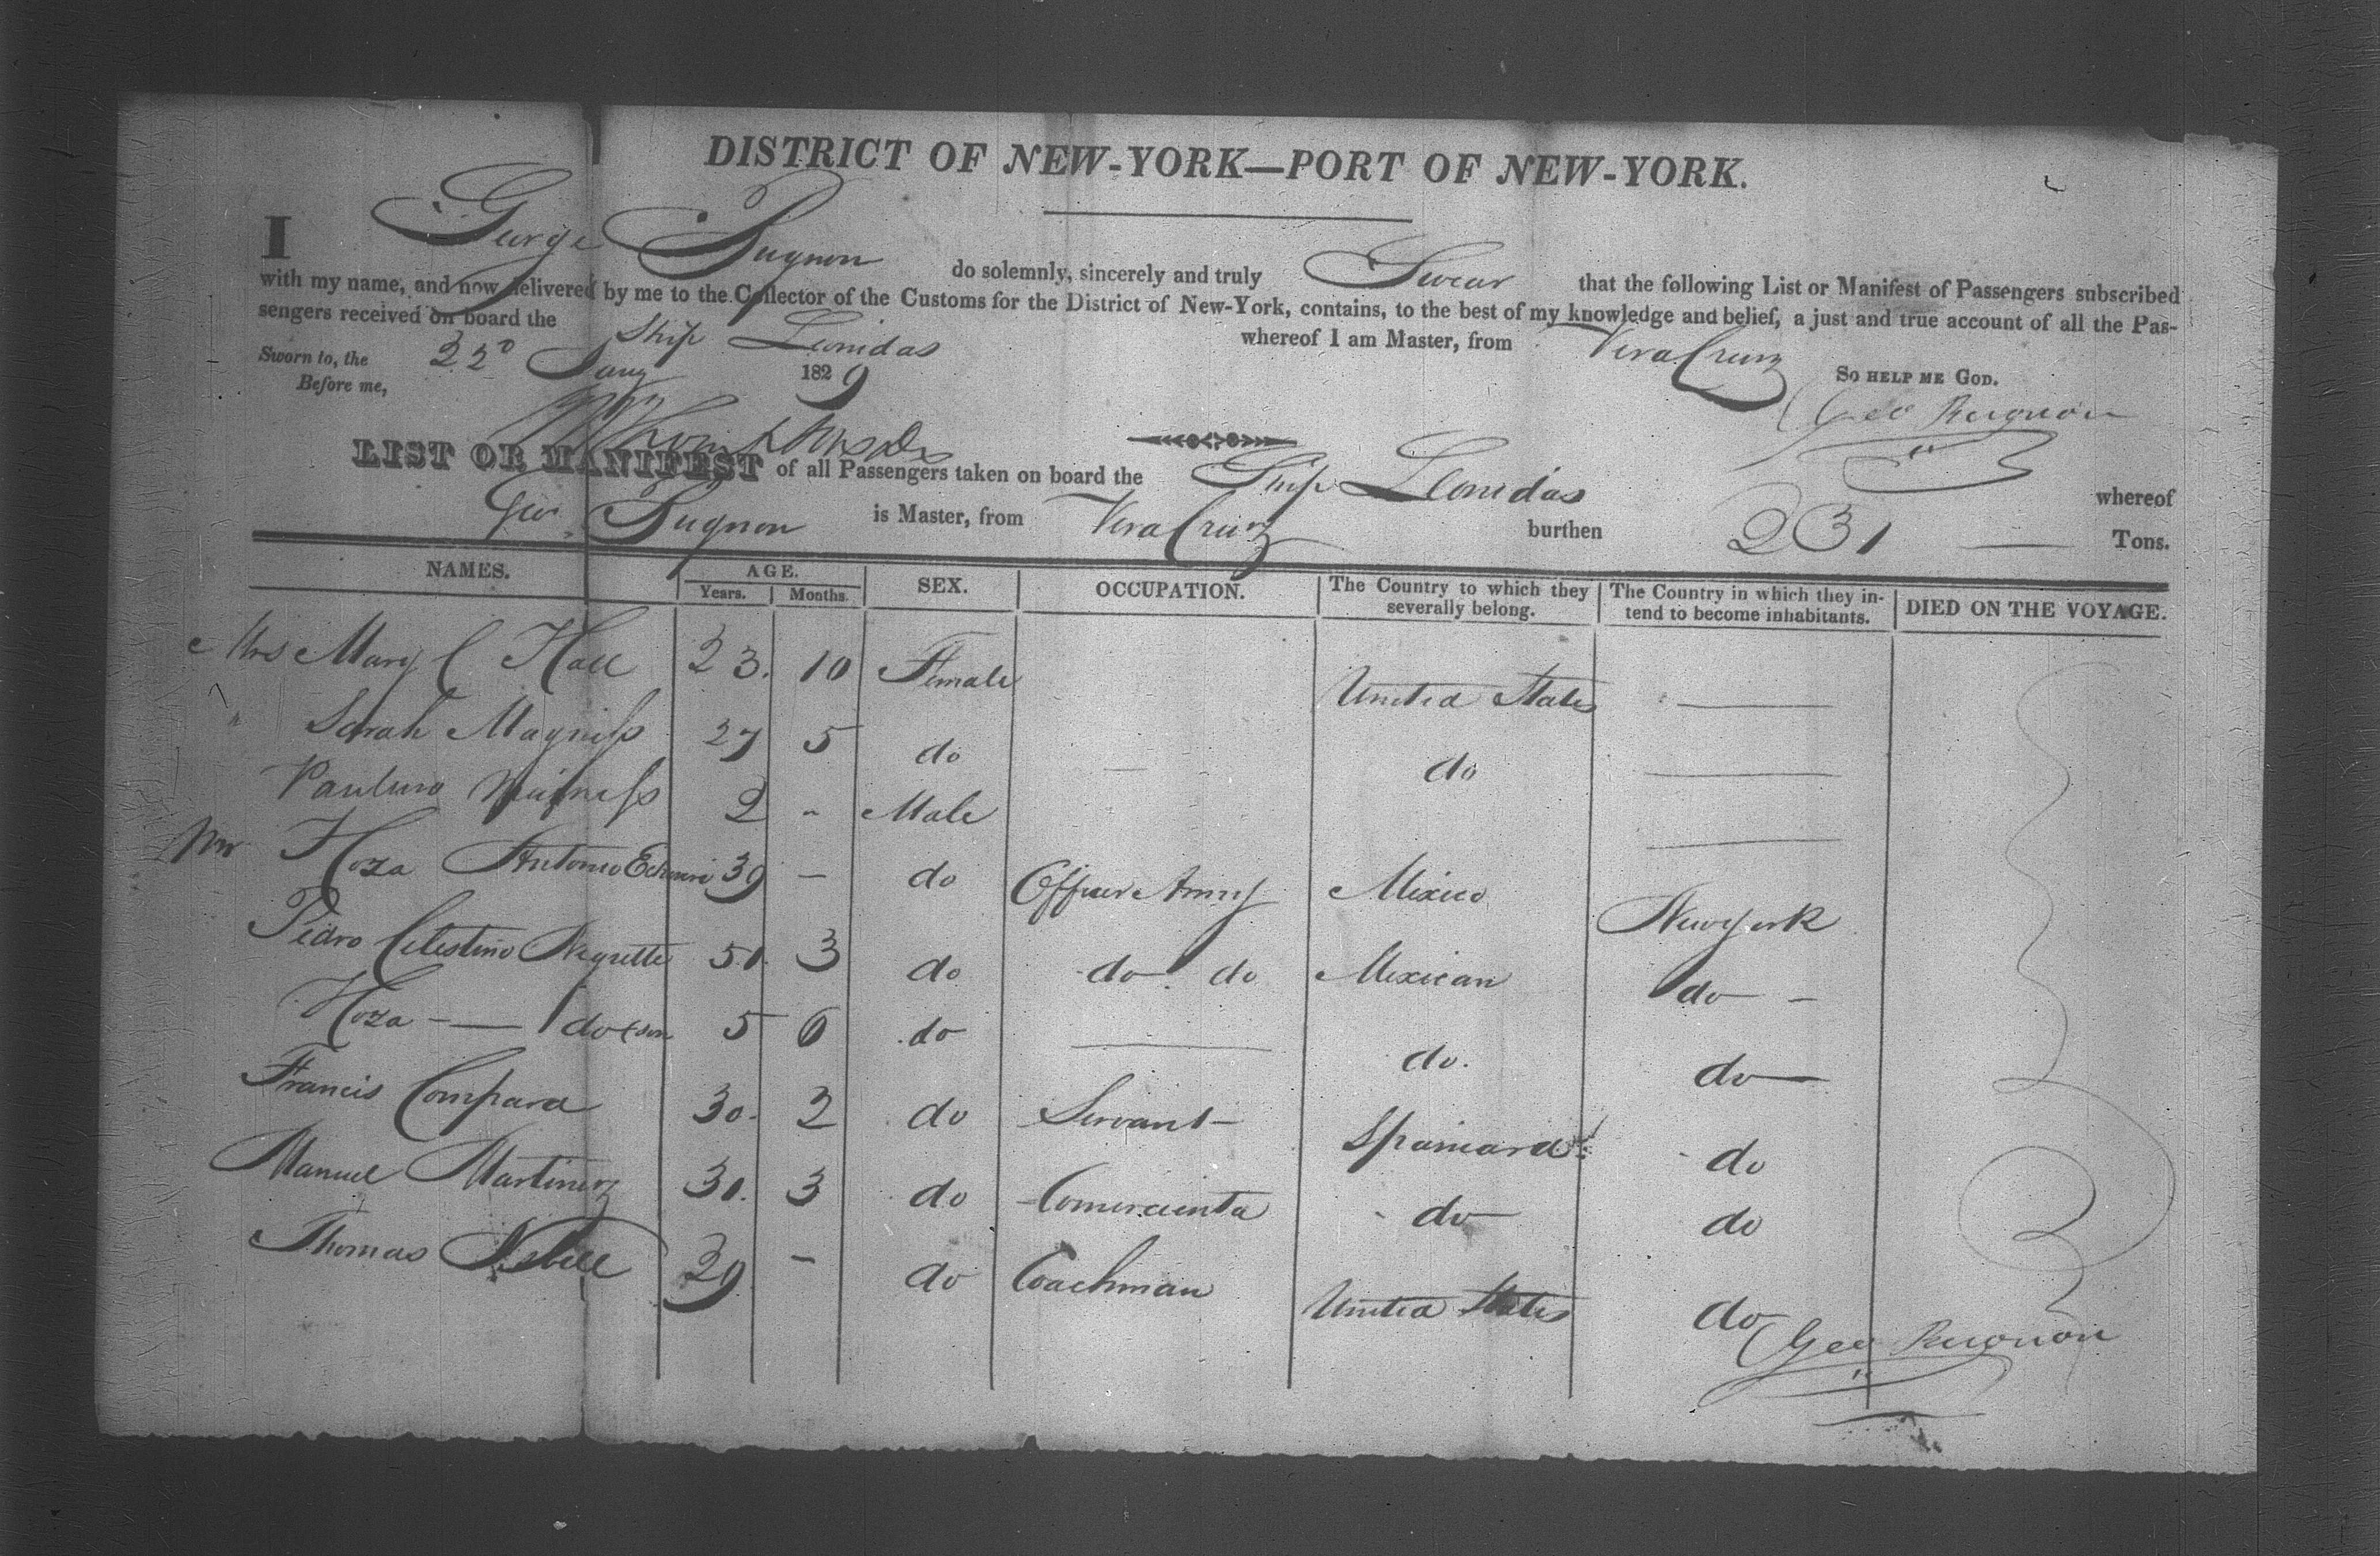 DISTRICT OF NEW-YORK—PORT OF NEW-YORK.
I George do solemnly, sincerely and truly Swear that the following List or Manifest of Passengers subscribed
with my name, and now delivered by me to the Collector of the Customs for the District of New-York, contains, to the best of my knowledge and belief, a just and true account of all the Pas-
sengers received on board the Ship Leonidas whereof I am Master, from Vera Cruz
Sworn to, the 22d Jany 1829 SO HELP ME GOD.
Before me, Geo
LIST OR MANIFEST of all Passengers taken on board the Ship Leonidas whereof
Geo is Master, from Vera Cruz burthen 231 — Tons.
NAMES. AGE. SEX. OCCUPATION. The Country to which they severally belong. The Country in which they in- tend to become inhabitants. DIED ON THE VOYAGE.
Years. Months.
Mrs Mary C Hall 23. 10 Female United States —
" Sarah Magness 27 5 do — do —
2 - Male —
Mr Hoza Antonio 39 — do Officer Army Mexico New york
Pedro Celestino Negrette 51. 3 do do do Mexican do -
Hoza — do (son 5 6 do — do. do —
Francis Compara 30. 2 do Servant Spaniard do
Manuel Martinez 31. 3 do Comercienta do do
Thomas 29 - do Coachman United States do
Geo